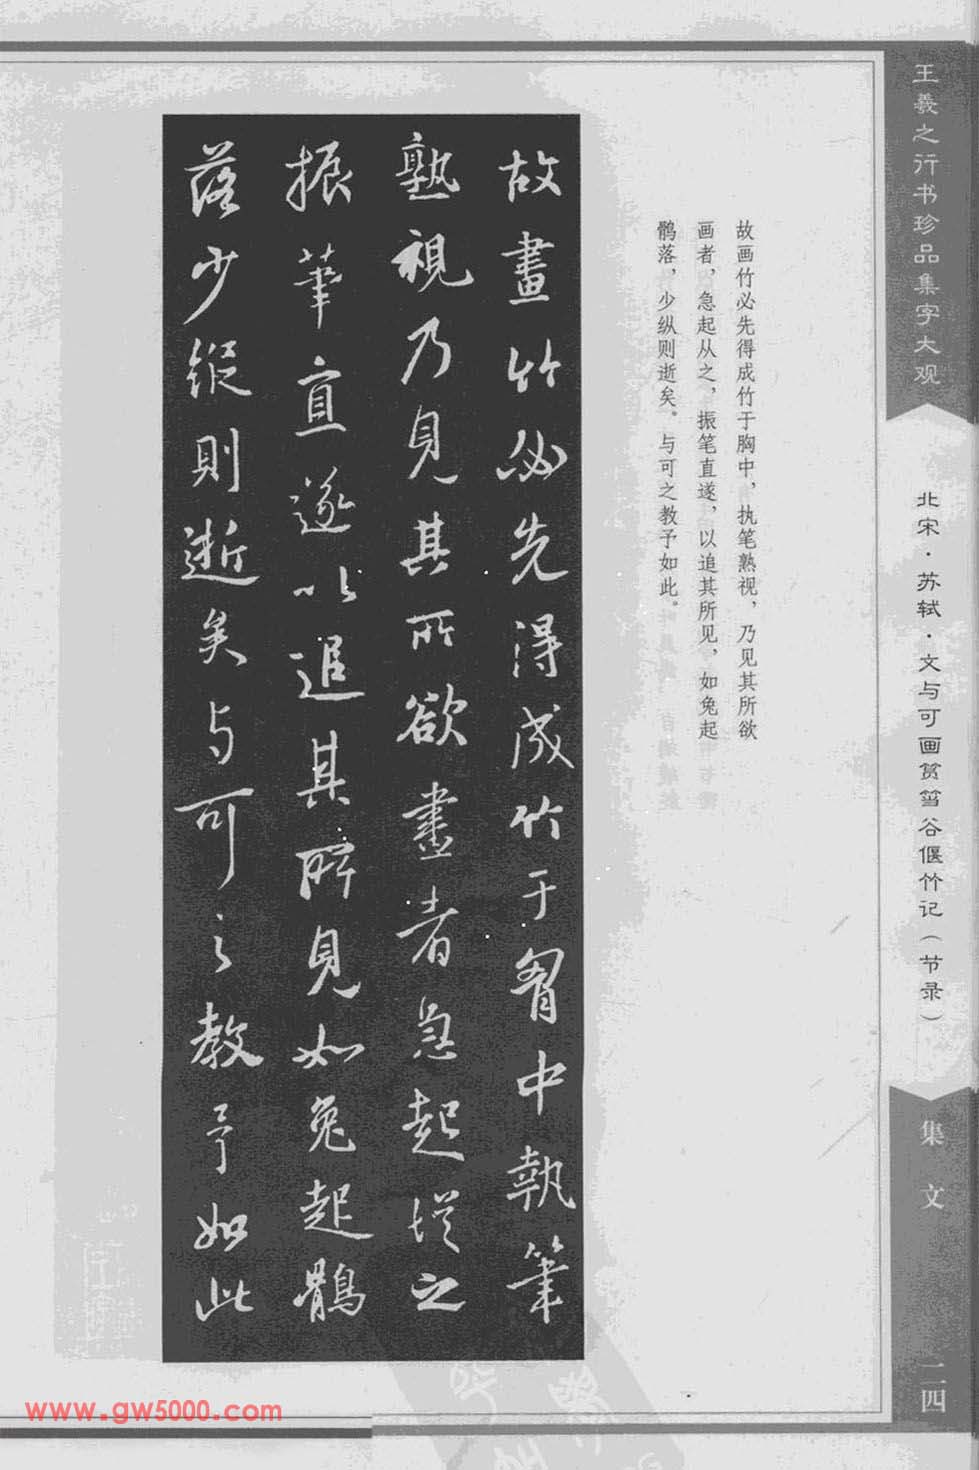 王羲之行书珍品集字大观
北宋·苏轼·文与可画筼筜谷偃竹记（节录）
集文
二四
故画竹必先得成竹于胸中，执笔熟视，乃见其所欲
画者，急起从之，振笔直遂，以追其所见，如兔起
鹘落，少纵则逝矣。与可之教予如此。
故畫竹必先得成竹于胷中執筆
熟視乃見其所欲畫者急起從之
振筆直遂以追其所見如兔起鶻
落少縱則逝矣与可之教予如此
www.gw5000.com